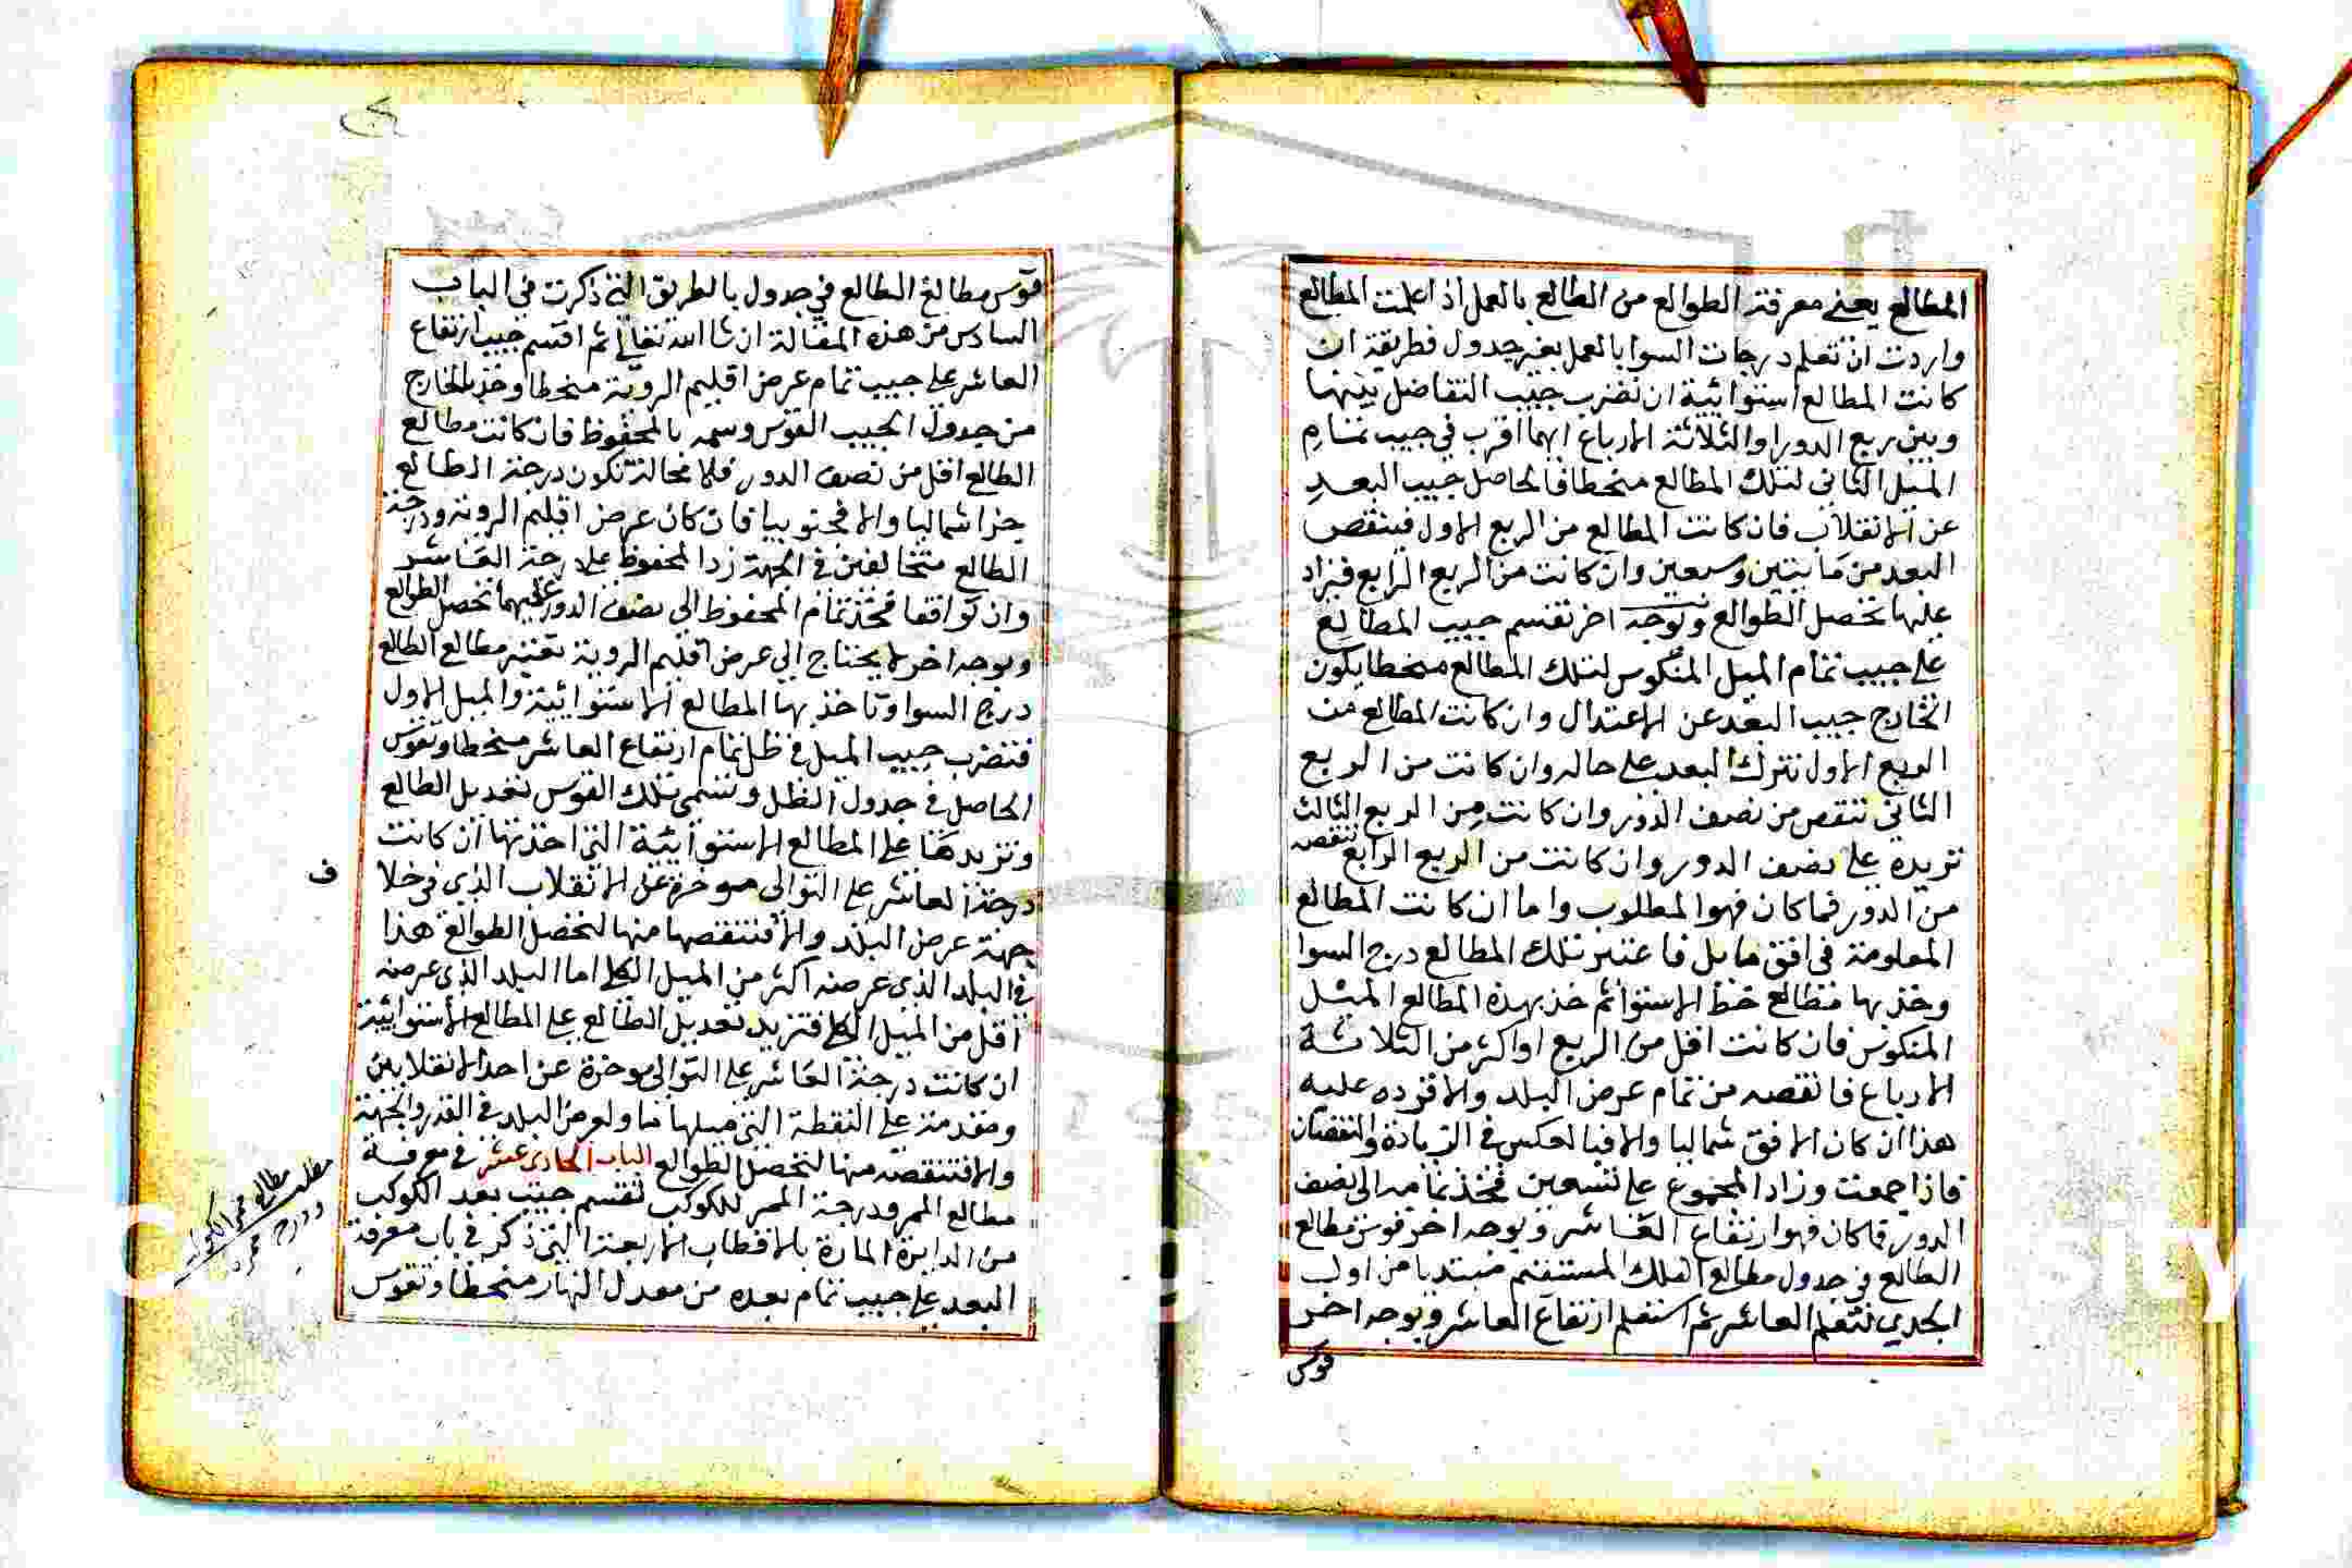 المطالع يعني معرفة الطوالع من الطالع بالعمل اذا علمت المطالع
واردت ان تعلم درجات السوا بالعمل بغير جدول فطريقة ان
كانت المطالع استوائية ان تضرب جيب التفاضل بينها
وبين ربع الدور او الثلاثة الارباع ايهما اقرب في جيب تمام
الميل الثاني لتلك المطالع منحطا فالحاصل جيب البعد
عن الانقلاب فان كانت المطالع من الربع الاول فينقص
البعد من مايتين وسبعين وان كانت من الربع الرابع فيزاد
عليها تحصل الطوالع وبوجه اخر تقسم جيب المطالع
على جيب تمام الميل المنكوس لتلك المطالع منحطا يكون
الخارج جيب البعد عن الاعتدال وان كانت المطالع من
الربع الاول نترك البعد على حاله وان كانت من الربع
الثاني ننقص من نصف الدور وان كانت من الربع الثالث
نزيده على نصف الدور وان كانت من الربع الرابع ننقصه
من الدور فما كان فهو المطلوب واما ان كانت المطالع
المعلومة في افق مايل فاعتبر تلك المطالع درج السوا
وخذ بها مطالع خط الاستوا ثم خذ بهذه المطالع الميل
المنكوس فان كانت اقل من الربع او اكثر من الثلاثة
الارباع فانقصه من تمام عرض البلد والا فزده عليه
هذا ان كان الافق شماليا والا فبالعكس في الزيادة والنقصان
فاذا جمعت وزاد المجموع على تسعين فخذ تمامه الى نصف
الدور فما كان فهو ارتفاع العاشر وبوجه اخر قوس مطالع
الطالع في جدول مطالع الفلك المستقيم مبتديا من اول
الجدي لتعلم العاشر ثم استعلم ارتفاع العاشر وبوجه اخر
قوس
قوس مطالع الطالع في جدول بالطريق التي ذكرت في الباب
السادس من هذه المقالة ان شا الله تعالى ثم اقسم جيب ارتفاع
العاشر على جيب تمام عرض اقليم الروية منحطا وخذ للخارج
من جدول الجيب القوس وسمه بالمحفوظ فان كانت مطالع
الطالع اقل من نصف الدور فلا محالة تكون درجة الطالع
جزا شماليا والا فجنوبيا فان كان عرض اقليم الروية ودرجة
الطالع متخالفين في الجهة زد المحفوظ على درجة العاشر
وان توافقا فخذ تمام المحفوظ الى نصف الدور عليهما تحصل الطوالع
وبوجه اخر لا يحتاج الى عرض اقليم الروية تعتبر مطالع الطالع
درج السوا وتاخذ بها المطالع الاستوائية والميل الاول
فتضرب جيب الميل في ظل تمام ارتفاع العاشر منحطا وتقوس
الحاصل في جدول الظل وتسمى تلك القوس تعديل الطالع
ونزيدها على المطالع الاستوائية التي اخذتها ان كانت
درجة العاشر على التوالى موخرة عن الانقلاب الذي في خلا
ف
جهة عرض البلد والا فتنقصها منها لتحصل الطوالع هذا
في البلد الذي عرضه اكثر من الميل الكلى اما البلد الذي عرضه
اقل من الميل الكلى فتزيد تعديل الطالع على المطالع الاستوائية
ان كانت درجة العاشر على التوالى موخرة عن احد الانقلابين
ومقدمة على النقطة التي ميلها مساو لعرض البلد في القدر والجهة
والا فتنقصه منها لتحصل الطوالع الباب الحادي عشر في معرفة
مطالع الممر ودرجة الممر للكوكب تقسم جيب بعد الكوكب
من الدايرة المارة بالاقطاب الاربعة التي ذكر في باب معرفة
البعد على جيب تمام بعده من معدل النهار منحطا وتقوس
مطلب مطالع ممر الكوكب
ودرج ممره